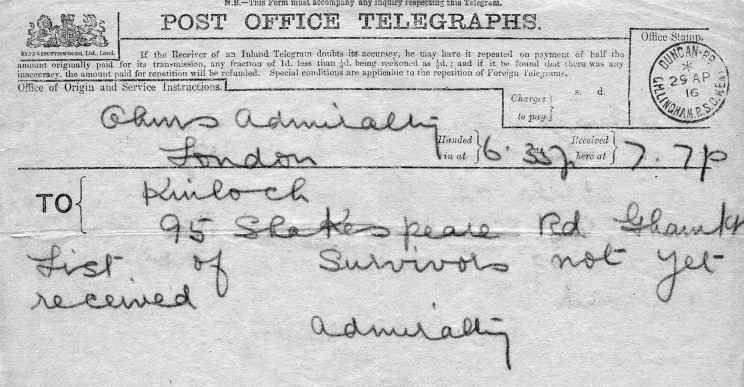 N.B.—This Form must accompany any inquiry respecting this Telegram.
POST OFFICE TELEGRAPHS.
If the Receiver of an Inland Telegram doubts its accuracy, he may have it repeated on payment of half the
amount originally paid for its transmission, any fraction of 1d. less than ½d. being reckoned as ½d.; and if it be found that there was any
inaccuracy, the amount paid for repetition will be refunded. Special conditions are applicable to the repetition of Foreign Telegrams.
Office Stamp.
DUNCAN. RD
29 AP
16
GILLINGHAM. R.S.O. KENT
Office of Origin and Service Instructions.
Charges to pay
s. d.
Ohms Admiralty
London
Handed in at 6.35p
Received here at 7.7p
TO
Kinloch
95 Shakespeare Rd Ghamkt
List of Survivors not yet
received
Admiralty